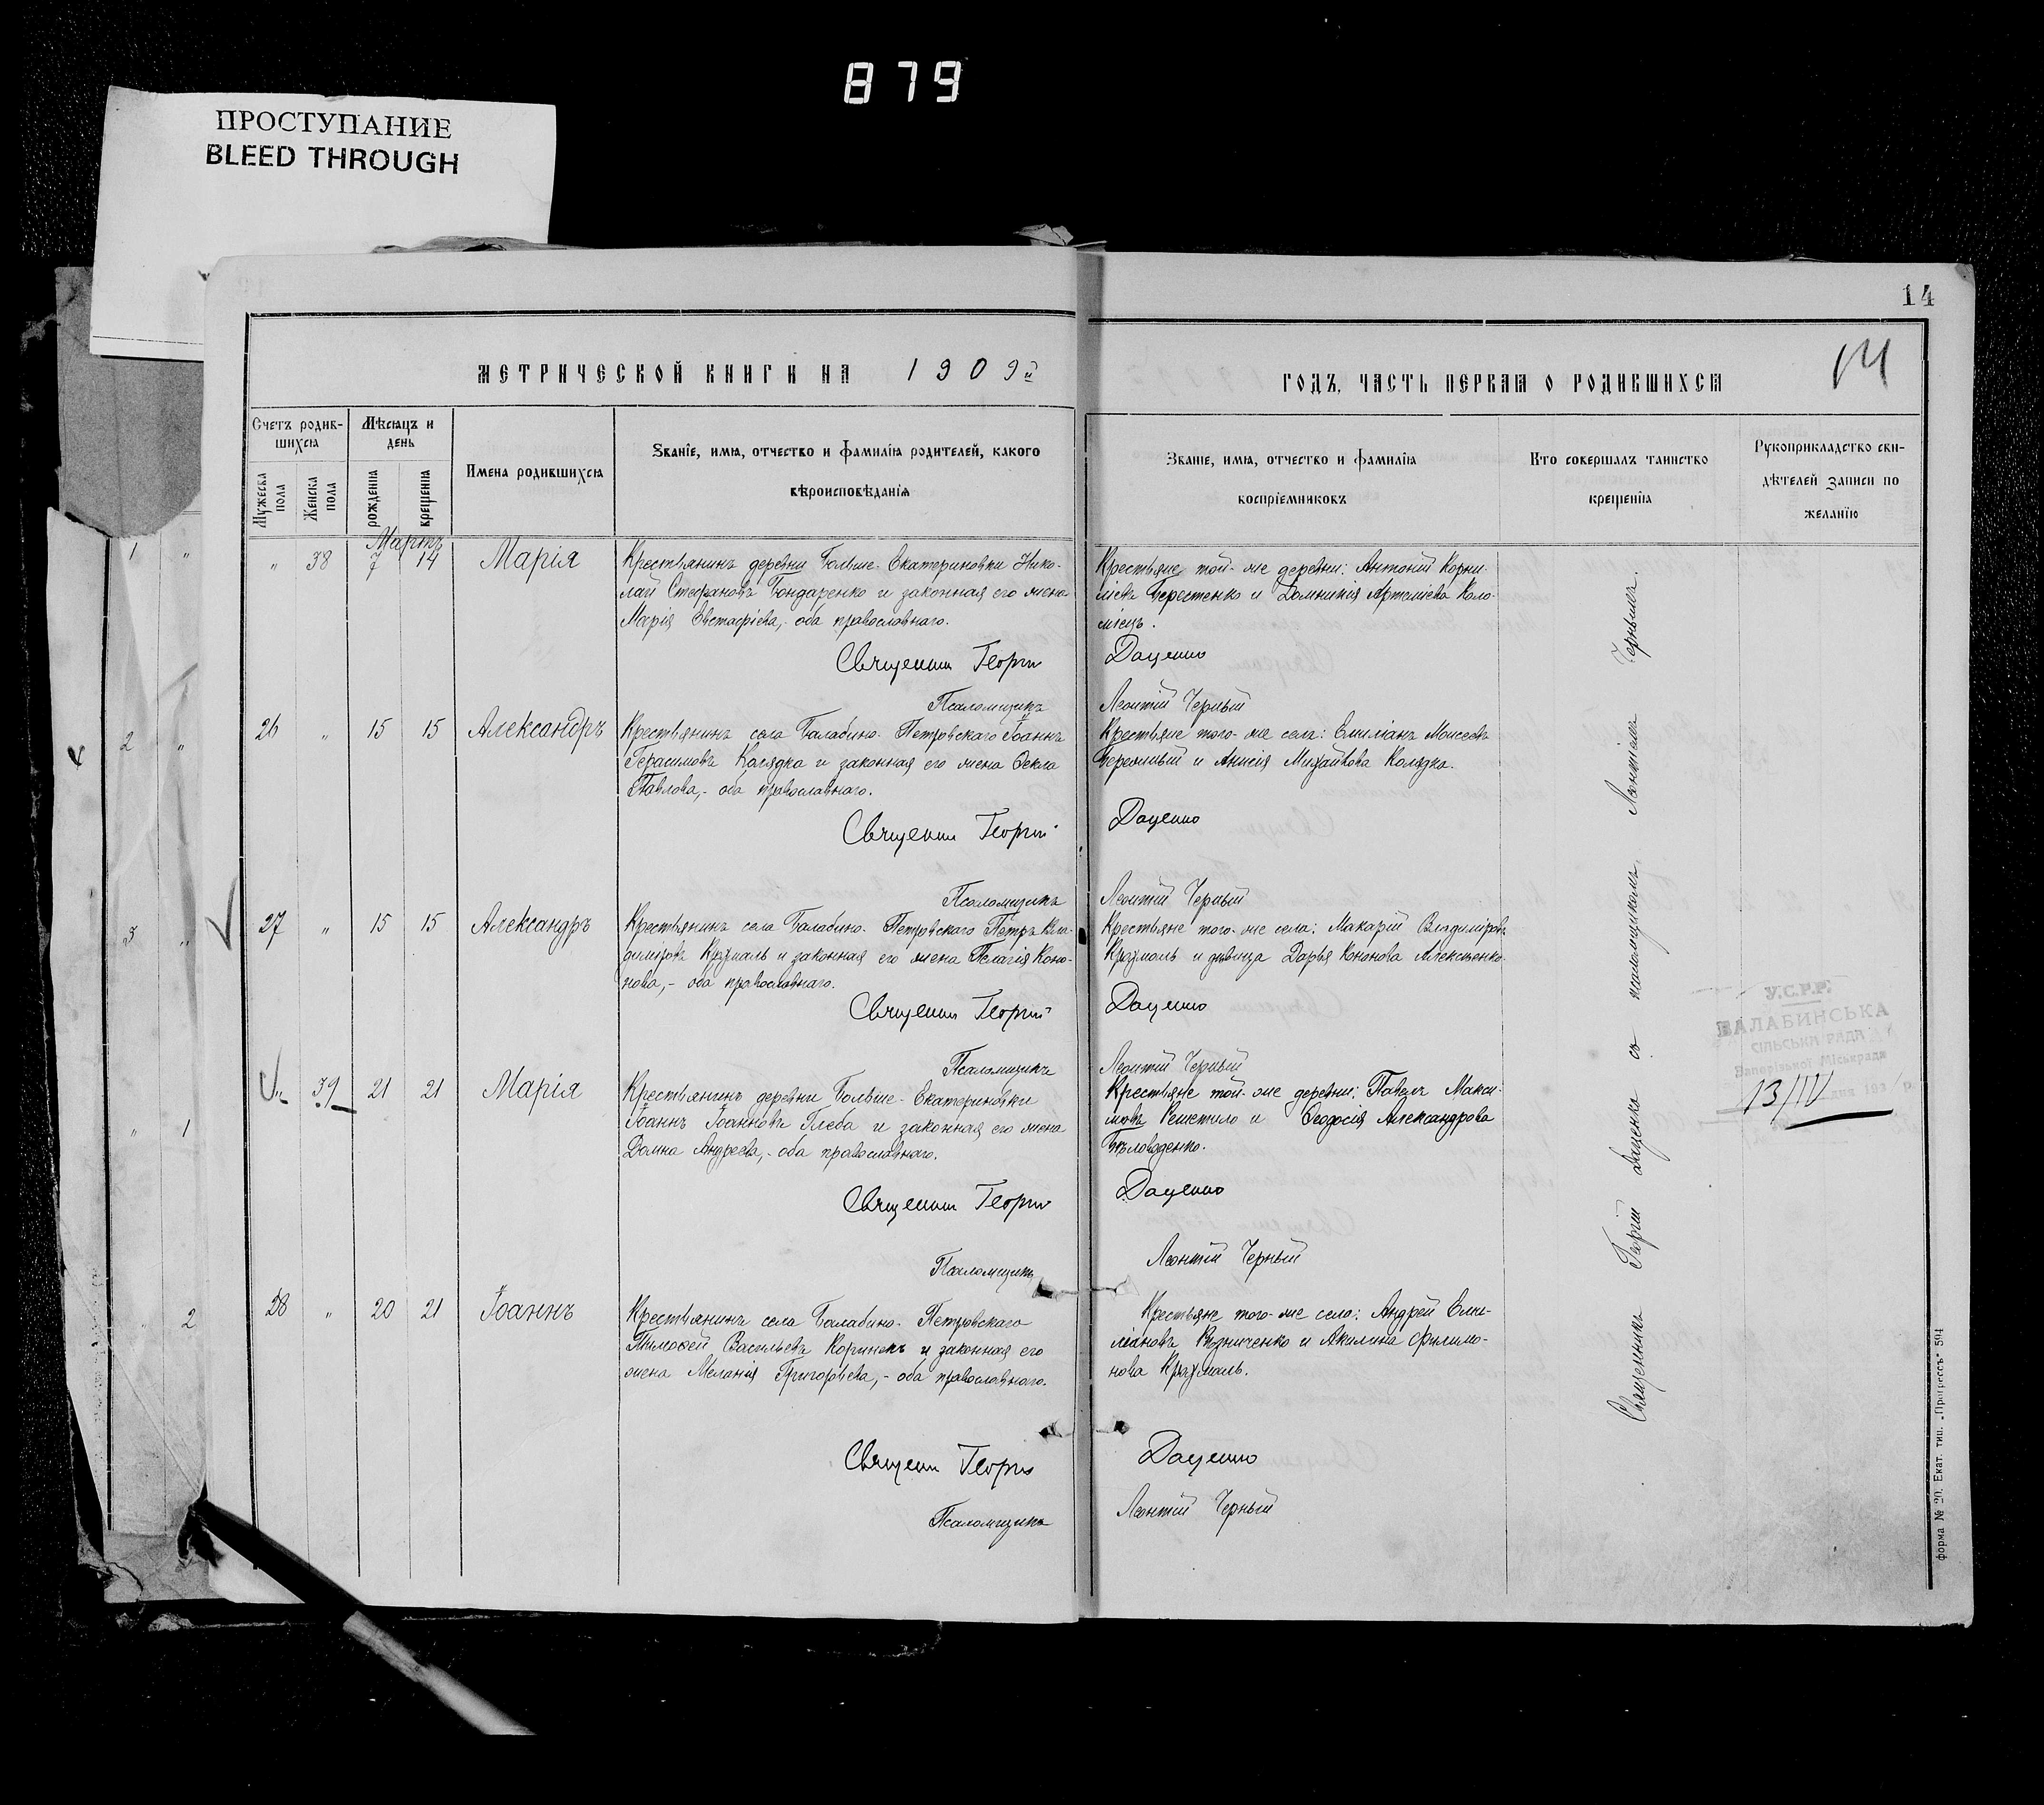 879
ПРОСТУПАНИЕ
BLEED THROUGH
14
МЕТРИЧЕСКОЙ КНИГИ НА 1909й
ГОДЪ, ЧАСТЬ ПЕРВАЯ О РОДИВШИХСЯ
14
Счетъ родив-
шихся
Мужеска пола
Женска пола
Мѣсяцъ и
день
рожденія
крещенія
Имена родившихся
Званіе, имя, отчество и фамилія родителей, какого
вѣроисповѣданія
Званіе, имя, отчество и фамилія
воспріемниковъ
Кто совершалъ таинство
крещенія
Рукоприкладство сви-
дѣтелей записи по
желанію
Мартъ
„ 38 7 14 Марія
Крестьянинъ деревни Больше-Екатериновки Нико-
лай Стефановъ Бондаренко и законная его жена
Марія Евстафіева,- оба православнаго.
Крестьяне той-же деревни: Антоній Корни-
ліевъ Берестенко и Домникія Артеміева Коло-
міецъ.
Священникъ Георгій Даценко
Псаломщикъ Леонтій Черный
26 „ 15 15 Александръ
Крестьянинъ села Балабино-Петровскаго Іоаннъ
Герасимовъ Колядка и законная его жена Ѳекла
Павлова,- оба православнаго.
Крестьяне того-же села: Емиліанъ Моисеевъ
Бережный и Анисія Михайлова Колядка.
Священникъ Георгій Даценко
Псаломщикъ Леонтій Черный
27 „ 15 15 Александръ
Крестьянинъ села Балабино-Петровскаго Петръ Вла-
диміровъ Крухмаль и законная его жена Пелагія Коно-
нова,- оба православнаго.
Крестьяне того-же села: Макарій Владиміровъ
Крухмаль и дѣвица Дарья Кононова Алексѣенко.
Священникъ Георгій Даценко
Псаломщикъ Леонтій Черный
„ 39 21 21 Марія
Крестьянинъ деревни Больше-Екатериновки
Іоаннъ Іоанновъ Глеба и законная его жена
Домна Андреева,- оба православнаго.
Крестьяне той-же деревни: Павелъ Макси-
мовъ Решетило и Ѳеодосія Александрова
Бѣловоденко.
Священникъ Георгій Даценко
Псаломщикъ Леонтій Черный
28 „ 20 21 Іоаннъ
Крестьянинъ села Балабино-Петровскаго
Тимоѳей Васильевъ Коринекъ и законная его
жена Меланія Григорьева,- оба православнаго.
Крестьяне того-же села: Андрей Еми-
ліановъ Рѣзниченко и Акилина Филимо-
нова Крухмаль.
Священникъ Георгій Даценко
Псаломщикъ Леонтій Черный
Священникъ Георгій Даценко съ псаломщикомъ Леонтіемъ Чернымъ.
У.С.Р.Р.
БАЛАБИНСЬКА
СІЛЬСЬКА РАДА
Запорізької Міськради
13/IV 193 р.
форма № 20. Екат. тип. „Прогрессъ" 594
1 „
2 „
3 „
„ 1
„ 2